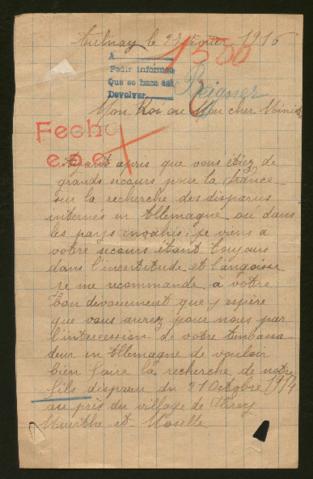 Aulnay le 1916
1500
A
Pedir informes
Que se haga así
Devolver
Mon Roi ou Mon cher
Fecho
e.o.e.
Ayant apris que vous étiez de
grands secours pour la france
sur la recherche des disparus
internés en Allemagne ou dans
les pays envahis; je viens à
votre secours étant toujours
dans l'incertitude et l'angoisse
je me recommande à votre
bon dévouement que j'espère
que vous aurez pour nous par
l'intercession de votre Ambassa
deur en Allemagne de vouloir
bien faire la recherche de notre
fils disparu du 21 Octobre 1914
au près du village de
Meurthe et Moselle